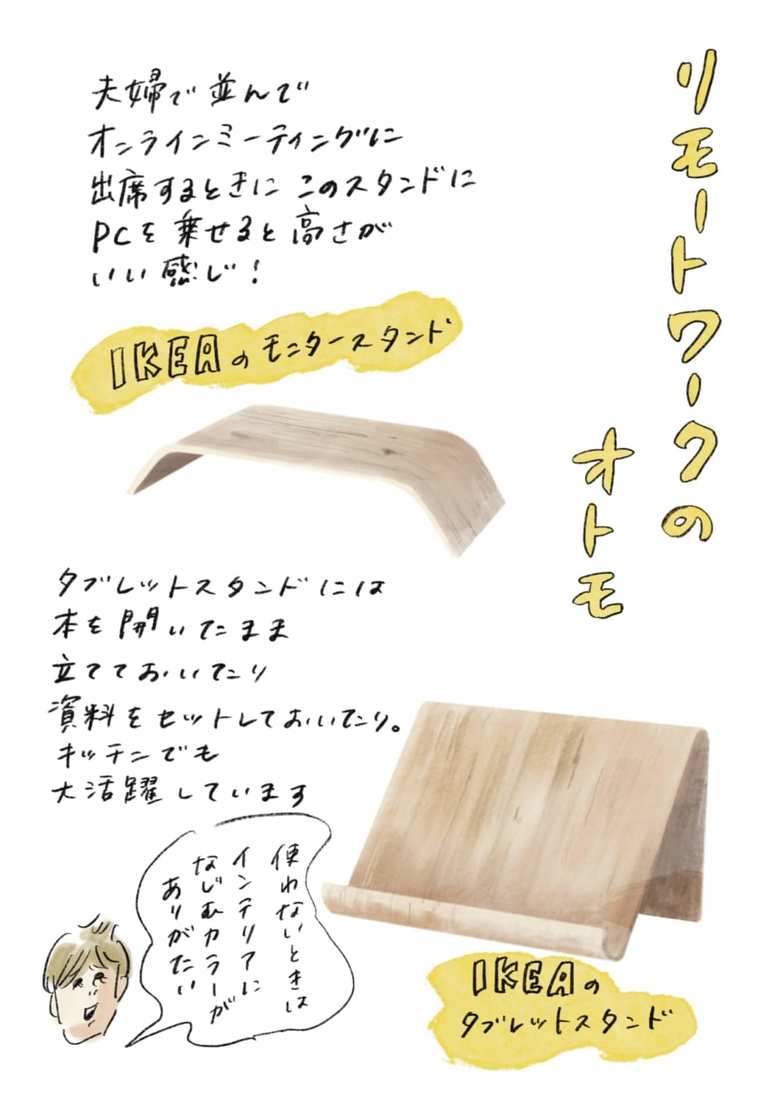 リモートワークの
オトモ
夫婦で並んで
オンラインミーティングに
出席するときに このスタンドに
PCを乗せると高さが
いい感じ！
IKEAのモニタースタンド
タブレットスタンドには
本を開いたまま
立てておいたり
資料をセットしておいたり。
キッチンでも
大活躍しています
使わないときは
インテリアに
なじむカラーが
ありがたい
IKEAの
タブレットスタンド